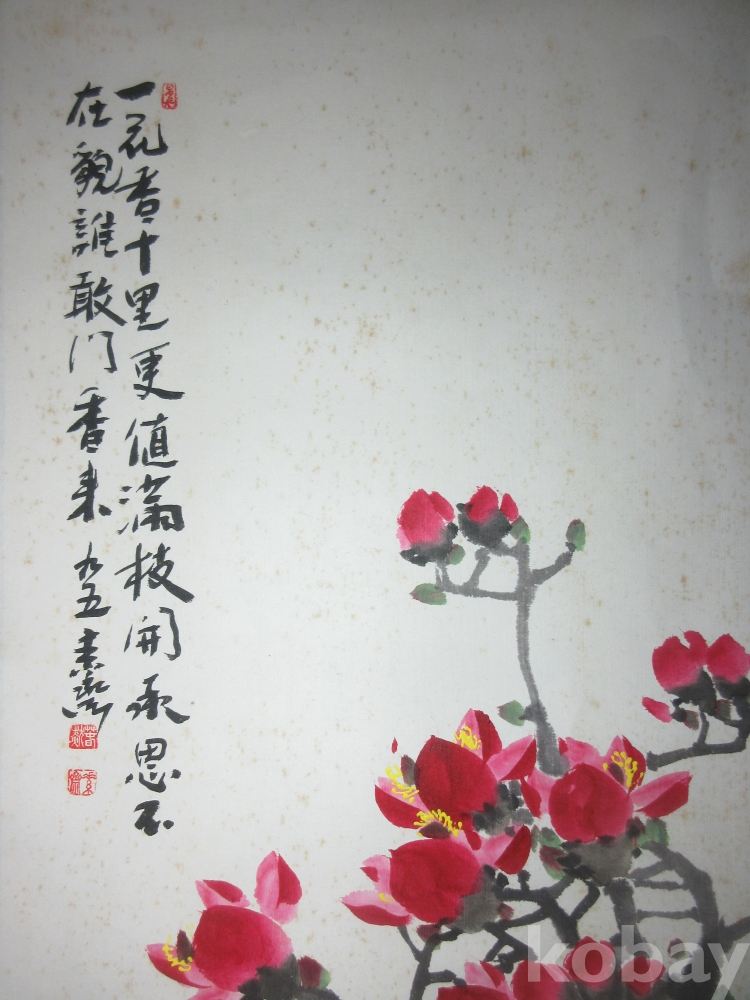 一花香十里更值滿枝開承恩不
在貌誰敢鬥香來 九五
kobay